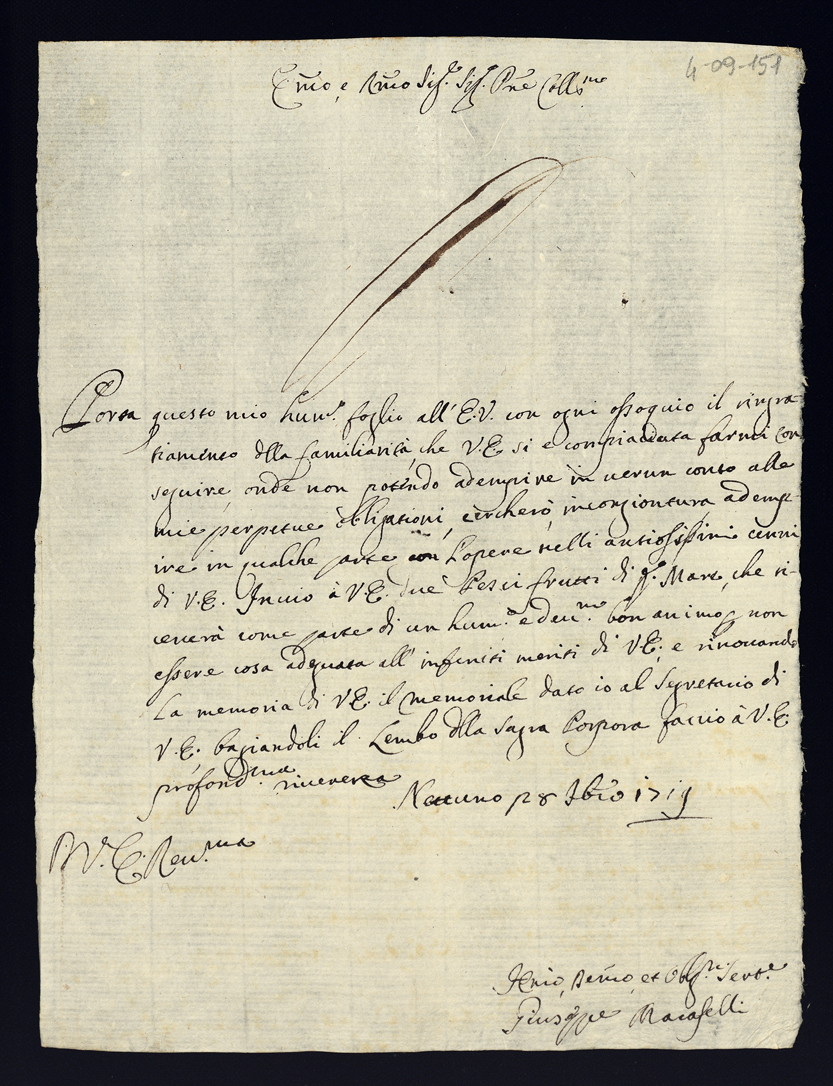 4-09-151
Em̃o, e Rm̃o Sig.re Sig.r Pñe Coll.mo
Porta questo mio hum.o foglio all' E.V. con ogni ossequio il ringra-
tiamento della familiarità, che V.E. si è compiaciuta farmi con
seguire, onde non potendo adempire in verun conto alle
mie perpetue obligationi, cercherò, in congiontura ademp-
ire in qualche parte con l'opere nelli
di V.E. Invio à V.E. due Pesci frutti di q.o Mare, che ri-
ceverà come parte di un hum.o e dev.mo bon animo, non
essere cosa adequata all' infiniti meriti di V.E., e rinovando
La memoria di V.E. il memoriale dato io al Segretario di
V.E. baciandoli il Lembo della Sagra Porpora faccio à V.E.
profond.ma riverenza
Nettuno 1719
D V. E. Rev.ma
Hum̃o, Devm̃o, et Obl.mo Serv.e
Giuseppe